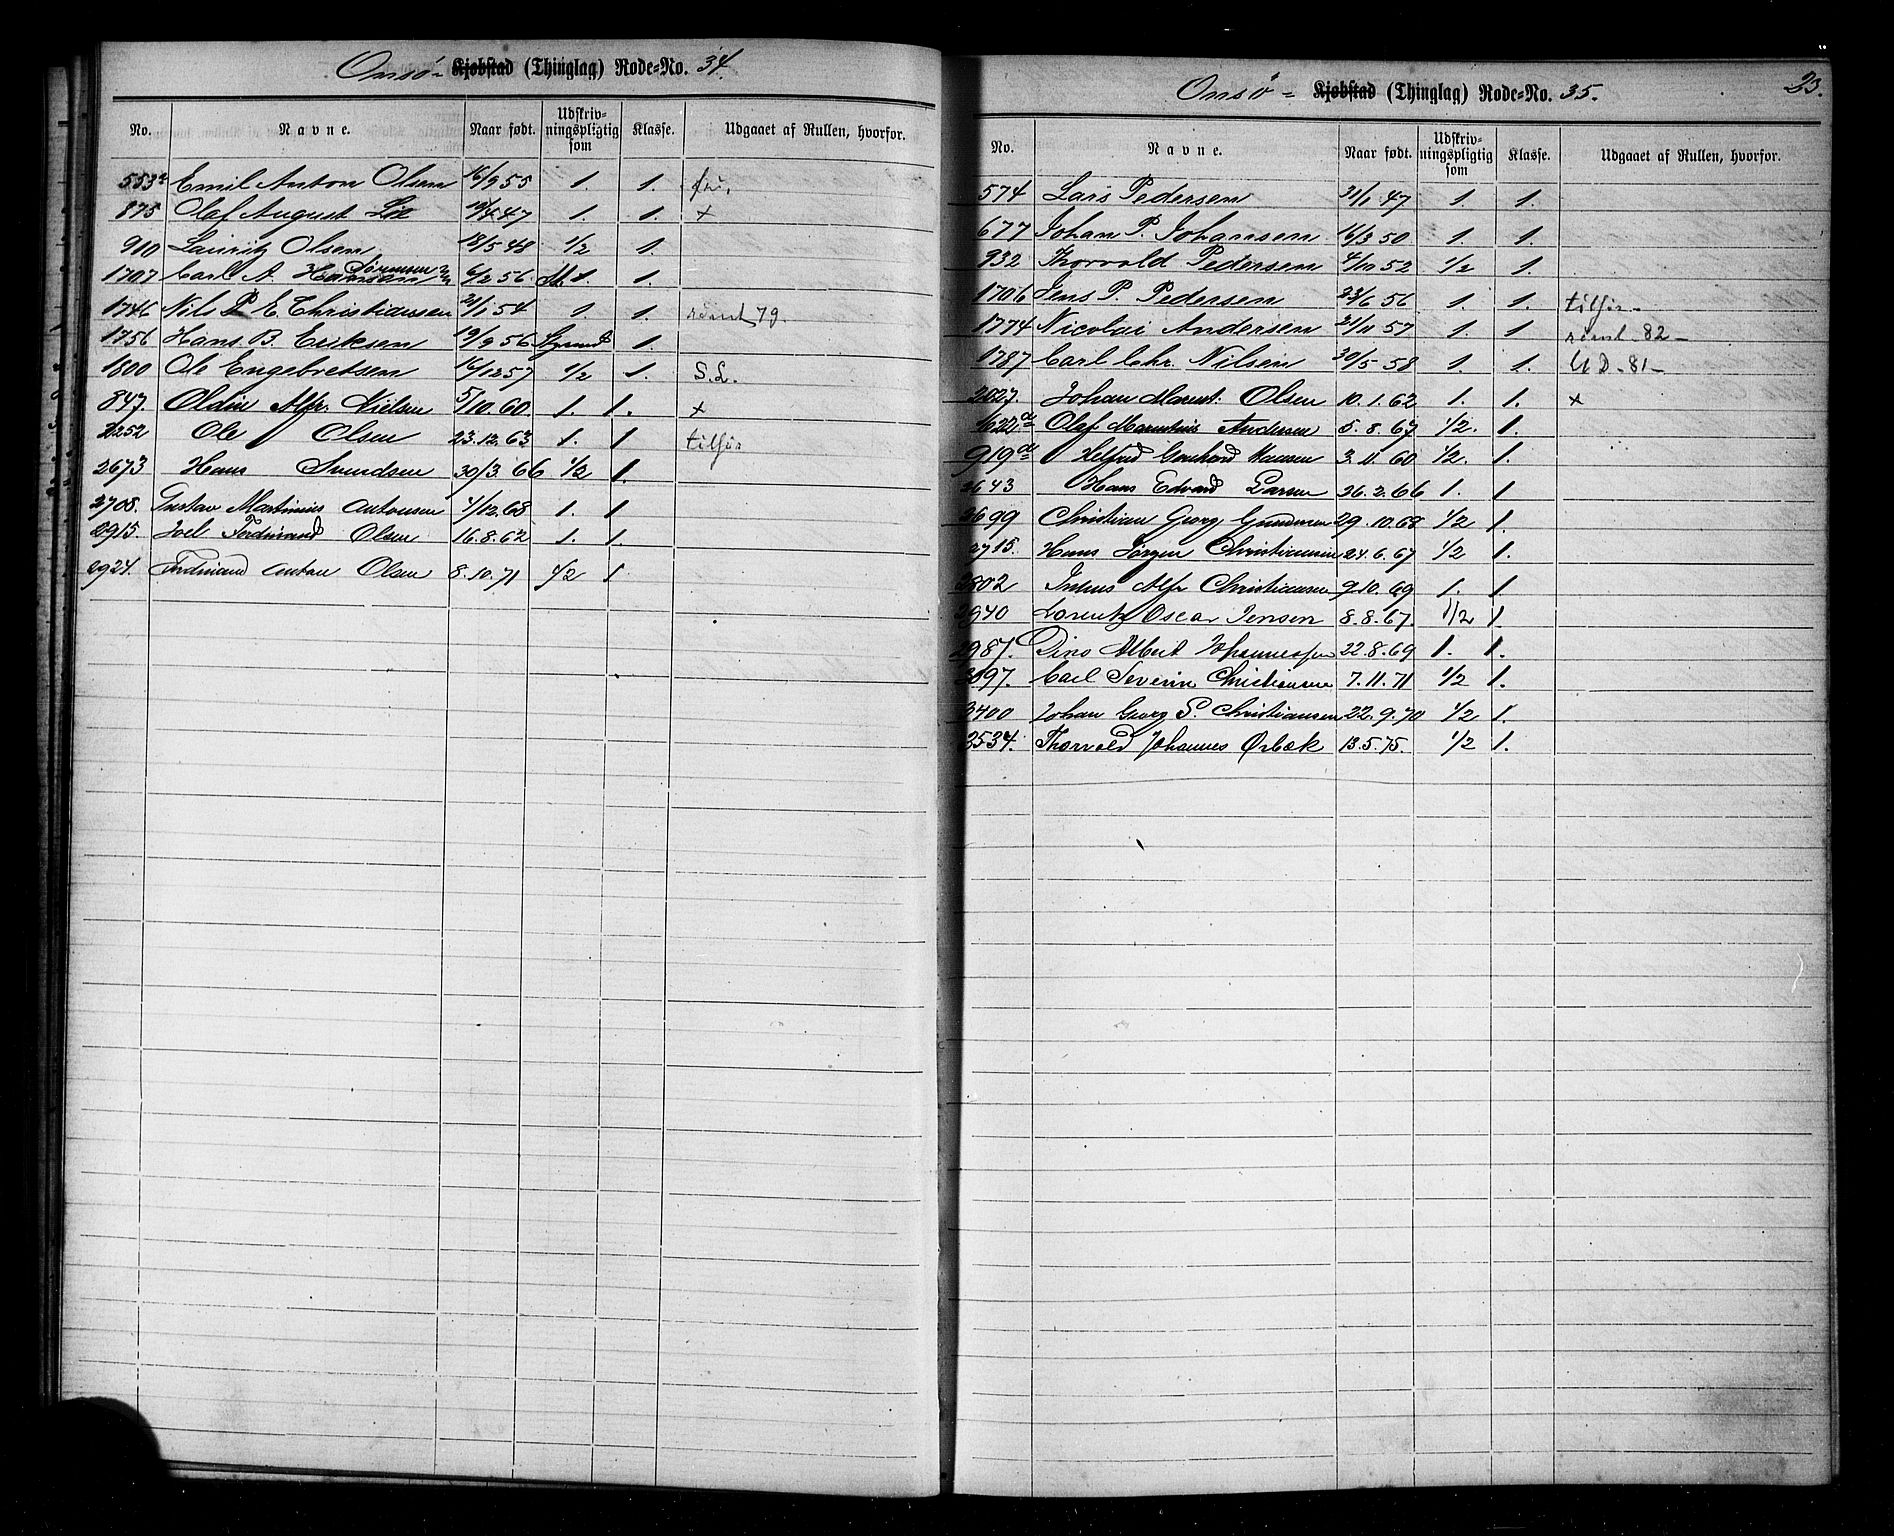 Onsø- Kjøbstad (Thinglag) Rode-No. 34.
No. Navne. Naar født. Udskriv-ningspligtig som Klasse. Udgaaet af Rullen, hvorfor.
553a Emil Anton Olsen 16/9 55 1. 1.
875 Olaf August Lie 19/4 47 1. 1. ×
910 Lauritz Olsen 18/5 48 1/2 1.
1707 Carl A. Hansen Sørensen 6/2 56 1. 1.
1746 Nils P E Christiansen 21/1 54 1. 1. rømt 79.
1756 Hans B. Eriksen 19/9 56 1.
1800 Ole Engebretsen 16/12 57 1/2 1. S.L.
847. Oldin Alfr. Nielsen 5/10.60. 1. 1. ×
2252 Ole Olsen 23.12.63 1. 1 tilfør
2673 Hans Svendsen 30/3.66 1/2 1.
2708. Gustav Martinius Antonsen 4/12.68 1. 1
2915. Joel Ferdinand Olsen 16.8.62 1. 1.
2924. Ferdinand Anton Olsen 8.10.71 1/2 1
Onsø- Kjøbstad (Thinglag) Rode-No. 35. 23.
No. Navne. Naar født. Udskriv-ningspligtig som Klasse. Udgaaet af Rullen, hvorfor.
574 Lars Pedersen 31/1 47 1. 1.
677 Johan P. Johansen 16/3 50 1. 1.
932 Thorvald Pedersen 4/10 52 1/2 1.
1706 Jens P. Pedersen 23/6 56 1. 1. tilfør-
1774 Nicolai Andersen 21/11 57 1. 1. rømt-82-
1787 Carl Chr. Nilsen 30/5-58 1. 1. UD-81-
2027. Johan Marent. Olsen 10.1.62 1. 1. ×
Olaf Marentius Andersen 5.8.67 1/2. 1.
919a Gerhard Hansen 3.11.60 1/2. 1.
2643 Hans Edvard Larsen 26.2.66 1. 1
2699 Christian Georg 29.10.68 1/2 1.
2715. Hans Jørgen Christiansen 24.6.67 1/2 1.
2802 Julius Alfr Christiansen 9.10.69 1. 1
2940 Lorentz Oscar Jensen 8.8.67. 1/2 1.
2987. Dino Albert Johannessen 22.8.69 1. 1.
3097. Carl Severin Christiansen 7.11.71 1/2 1.
3400 Johan Georg S. Christiansen 22.9.70 1/2 1.
3534. Thorvald Johannes Ørbæk 13.5.75. 1/2 1.